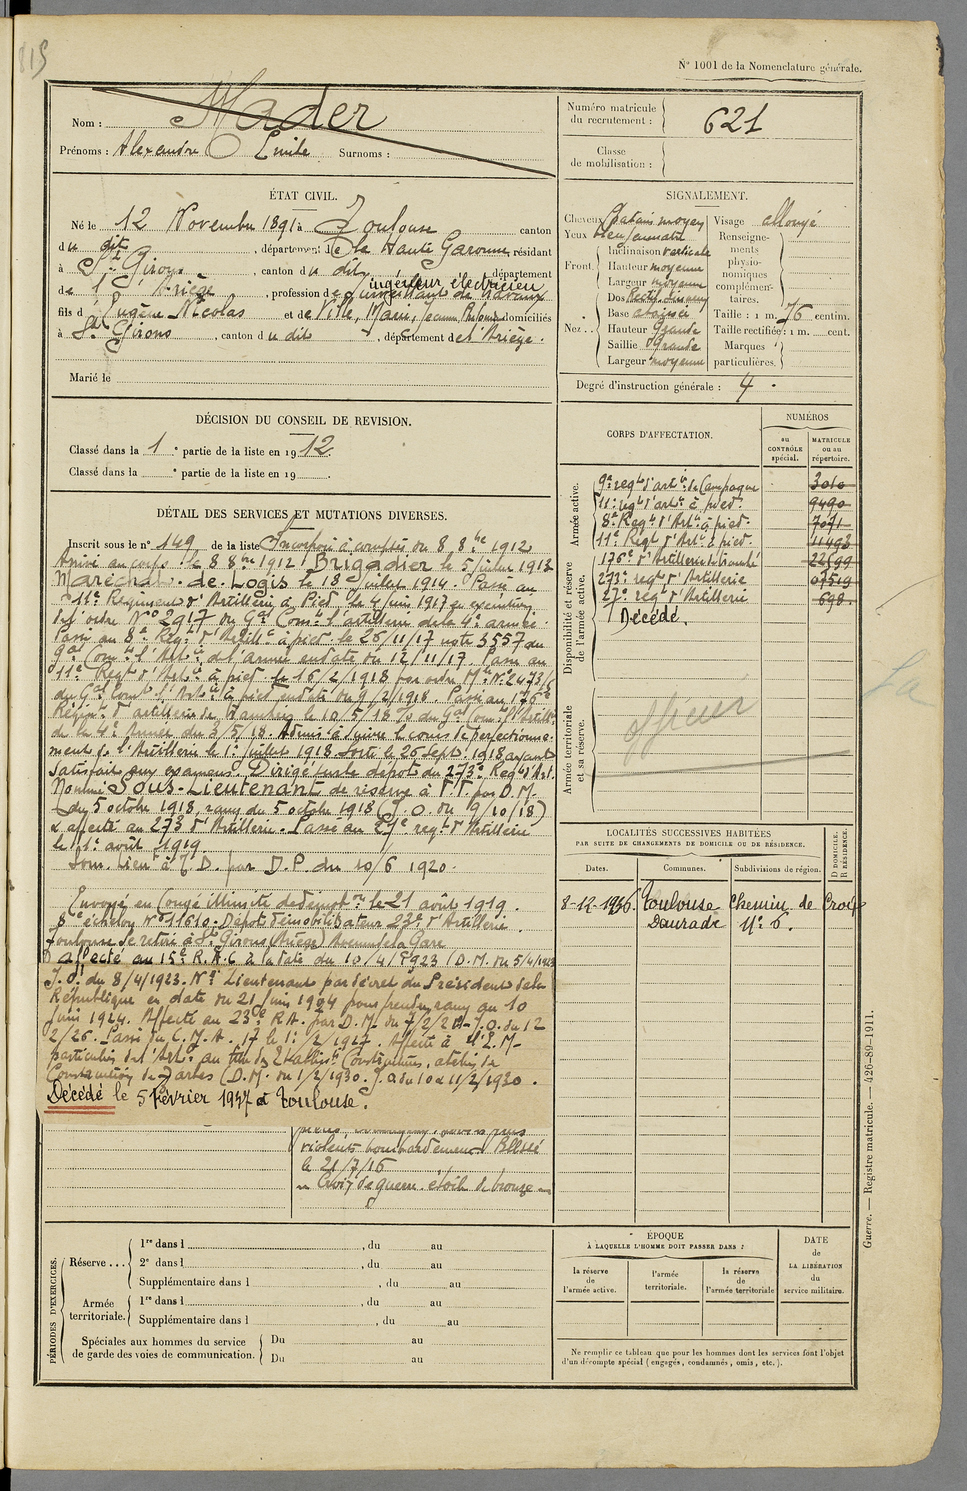 815
N° 1001 de la Nomenclature générale.
Nom : Mader
Prénoms : Alexandre Emile Surnoms :
Numéro matricule du recrutement : 621
Classe de mobilisation :
ÉTAT CIVIL.
Né le 12 Novembre 1891 à Toulouse canton
du dit, département de la Haute Garonne, résidant
à St Girons, canton du dit, département
de l'Ariège, profession de surveillant de travaux
ingénieur électricien
fils d'Eugène Nicolas et de domiciliés
à St Girons, canton du dit, département de l'Ariège.
Marié le
SIGNALEMENT.
Cheveux Chatain moyen
Yeux bleu
Front. Inclinaison verticale
Hauteur moyenne
Largeur moyenne
Nez... Dos
Base abaissée
Hauteur Grande
Saillie Grande
Largeur moyenne
Visage allongé
Renseignements physionomiques complémentaires.
Taille : 1 m. 76 centim.
Taille rectifiée : 1 m. cent.
Marques particulières.
Degré d'instruction générale : 4.
DÉCISION DU CONSEIL DE REVISION.
Classé dans la 1e partie de la liste en 1912.
Classé dans la e partie de la liste en 19
DÉTAIL DES SERVICES ET MUTATIONS DIVERSES.
Inscrit sous le n° 149 de la liste Incorporé à compter du 8 8bre 1912
Arrivé au corps le 8 8bre 1912 Brigadier le 5 juillet 1913
Maréchal-de-Logis le 18 juillet 1914. Passé au
11e Régiment d'Artillerie à Pied le 4 juin 1917 en exécution
de l'ordre N° 2917 du Gal Comt l'artillerie de la 4e armée.
Passé au 8e Régt d'Artillie à pied le 26/11/17 note 3557 du
Gal Comt l'Artie de l'armée en date du 12/11/17. Passé au
11e Régt d'Artie à pied le 16/2/1918 par ordre Mel N° 2473/
du Gal Comt l'Artie à pied en date du 9/2/1918. Passé au 176e
Régimt d'artillerie de tranchée le 10/5/18 du Gal Com. l'Artillie
de la 4e Armée du 3/5/18. Admis à suivre le cours de perfectionne-
ment de l'Artillerie le 1er juillet 1918. Sorti le 26 Sept. 1918 ayant
satisfait aux examens. Dirigé sur le dépôt du 273e Régt d'Art.
Nommé Sous-Lieutenant de réserve à T.T. par D.M.
du 5 octobre 1918, rang du 5 octobre 1918 (J.O. du 9/10/18)
& affecté au 273 d'Artillerie. Passé au 27e regt d'Artillerie
le 1er août 1919.
Sous. Lieut à T.D. par D.P. du 10/6 1920.
Envoyé en Congé illimité de démobon le 21 août 1919.
8e échelon N° 11610. Dépôt démobilisateur 23e d'Artillerie
Toulouse se retire à St Girons (Ariège) Avenue de la Gare
affecté au 15e R.A.C à la date du 10/4/1923 (D.M. du 5/4/1923
J.O. du 8/4/1923. Né Lieutenant par décret du Président de la
République en date du 21 Juin 1924 pour prendre rang au 10
juin 1924. Affecté au 23e R.A. par D.M. du 7/2/26 J.O. du 12
2/26. Passé au C.M.A. 17 le 1er/2/1927. Affecté à l'E.M.
particulier de l'Artie au titre des Etablists Constructeurs, atelier de
Construction de Tarbes (D.M. du 1/2/1930. J.O du 10 et 11/2/1930.
Décédé le 5 Février 1937 à Toulouse.
violents bombardements. Blessé
le 21/7/16
Croix de guerre étoile de bronze
CORPS D'AFFECTATION.
NUMÉROS
au CONTRÔLE spécial.
MATRICULE ou au répertoire.
Armée active.
9e régt d'artie de Campagne 3010
11e régt d'artie à pied. 9490
8e Régt d'Artie à pied. 7071
11e Régt d'Artie à pied. 11493
Disponibilité et réserve de l'armée active.
176e d'Artillerie de tranchée 22599
273e régt d'Artillerie 07519
27e régt d'Artillerie 698
Décédé.
Armée territoriale et sa réserve.
Officier
La
LOCALITÉS SUCCESSIVES HABITÉES
PAR SUITE DE CHANGEMENTS DE DOMICILE OU DE RÉSIDENCE.
Dates. Communes. Subdivisions de région. D DOMICILE. R RÉSIDENCE.
8-12-1936. Toulouse Chemin de Croix
Daurade N° 6.
PÉRIODES D'EXERCICES.
Réserve... 1re dans l , du au
2e dans l , du au
Supplémentaire dans l , du au
Armée territoriale. 1re dans l , du au
Supplémentaire dans l , du au
Spéciales aux hommes du service de garde des voies de communication. Du au
Du au
ÉPOQUE
À LAQUELLE L'HOMME DOIT PASSER DANS :
la réserve de l'armée active.
l'armée territoriale.
la réserve de l'armée territoriale
DATE de LA LIBÉRATION du service militaire.
Ne remplir ce tableau que pour les hommes dont les services font l'objet
d'un décompte spécial (engagés, condamnés, omis, etc.).
Guerre. — Registre matricule. — 426-89-1911.